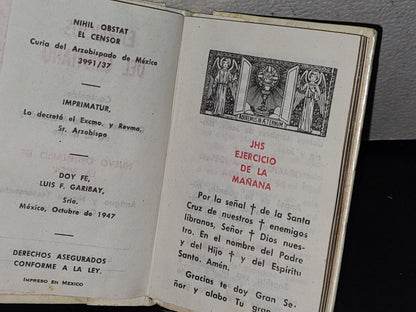 NIHIL OBSTAT
EL CENSOR
Curia del Arzobispado de México
3991/37
IMPRIMATUR,
Lo decretó el Excmo. y Revmo.
Sr. Arzobispo
DOY FE,
LUIS F. GARIBAY,
Srio.
México, Octubre de 1947
DERECHOS ASEGURADOS
CONFORME A LA LEY.
IMPRESO EN MEXICO
ADOREMUS IN AETERNUM
JHS
EJERCICIO
DE LA
MAÑANA
Por la señal † de la Santa
Cruz de nuestros † enemigos
líbranos, Señor † Dios nues-
tro. En el nombre del Padre
y del Hijo † y del Espíritu
Santo, Amén.
Gracias te doy Gran Se-
ñor y alabo Tu gran